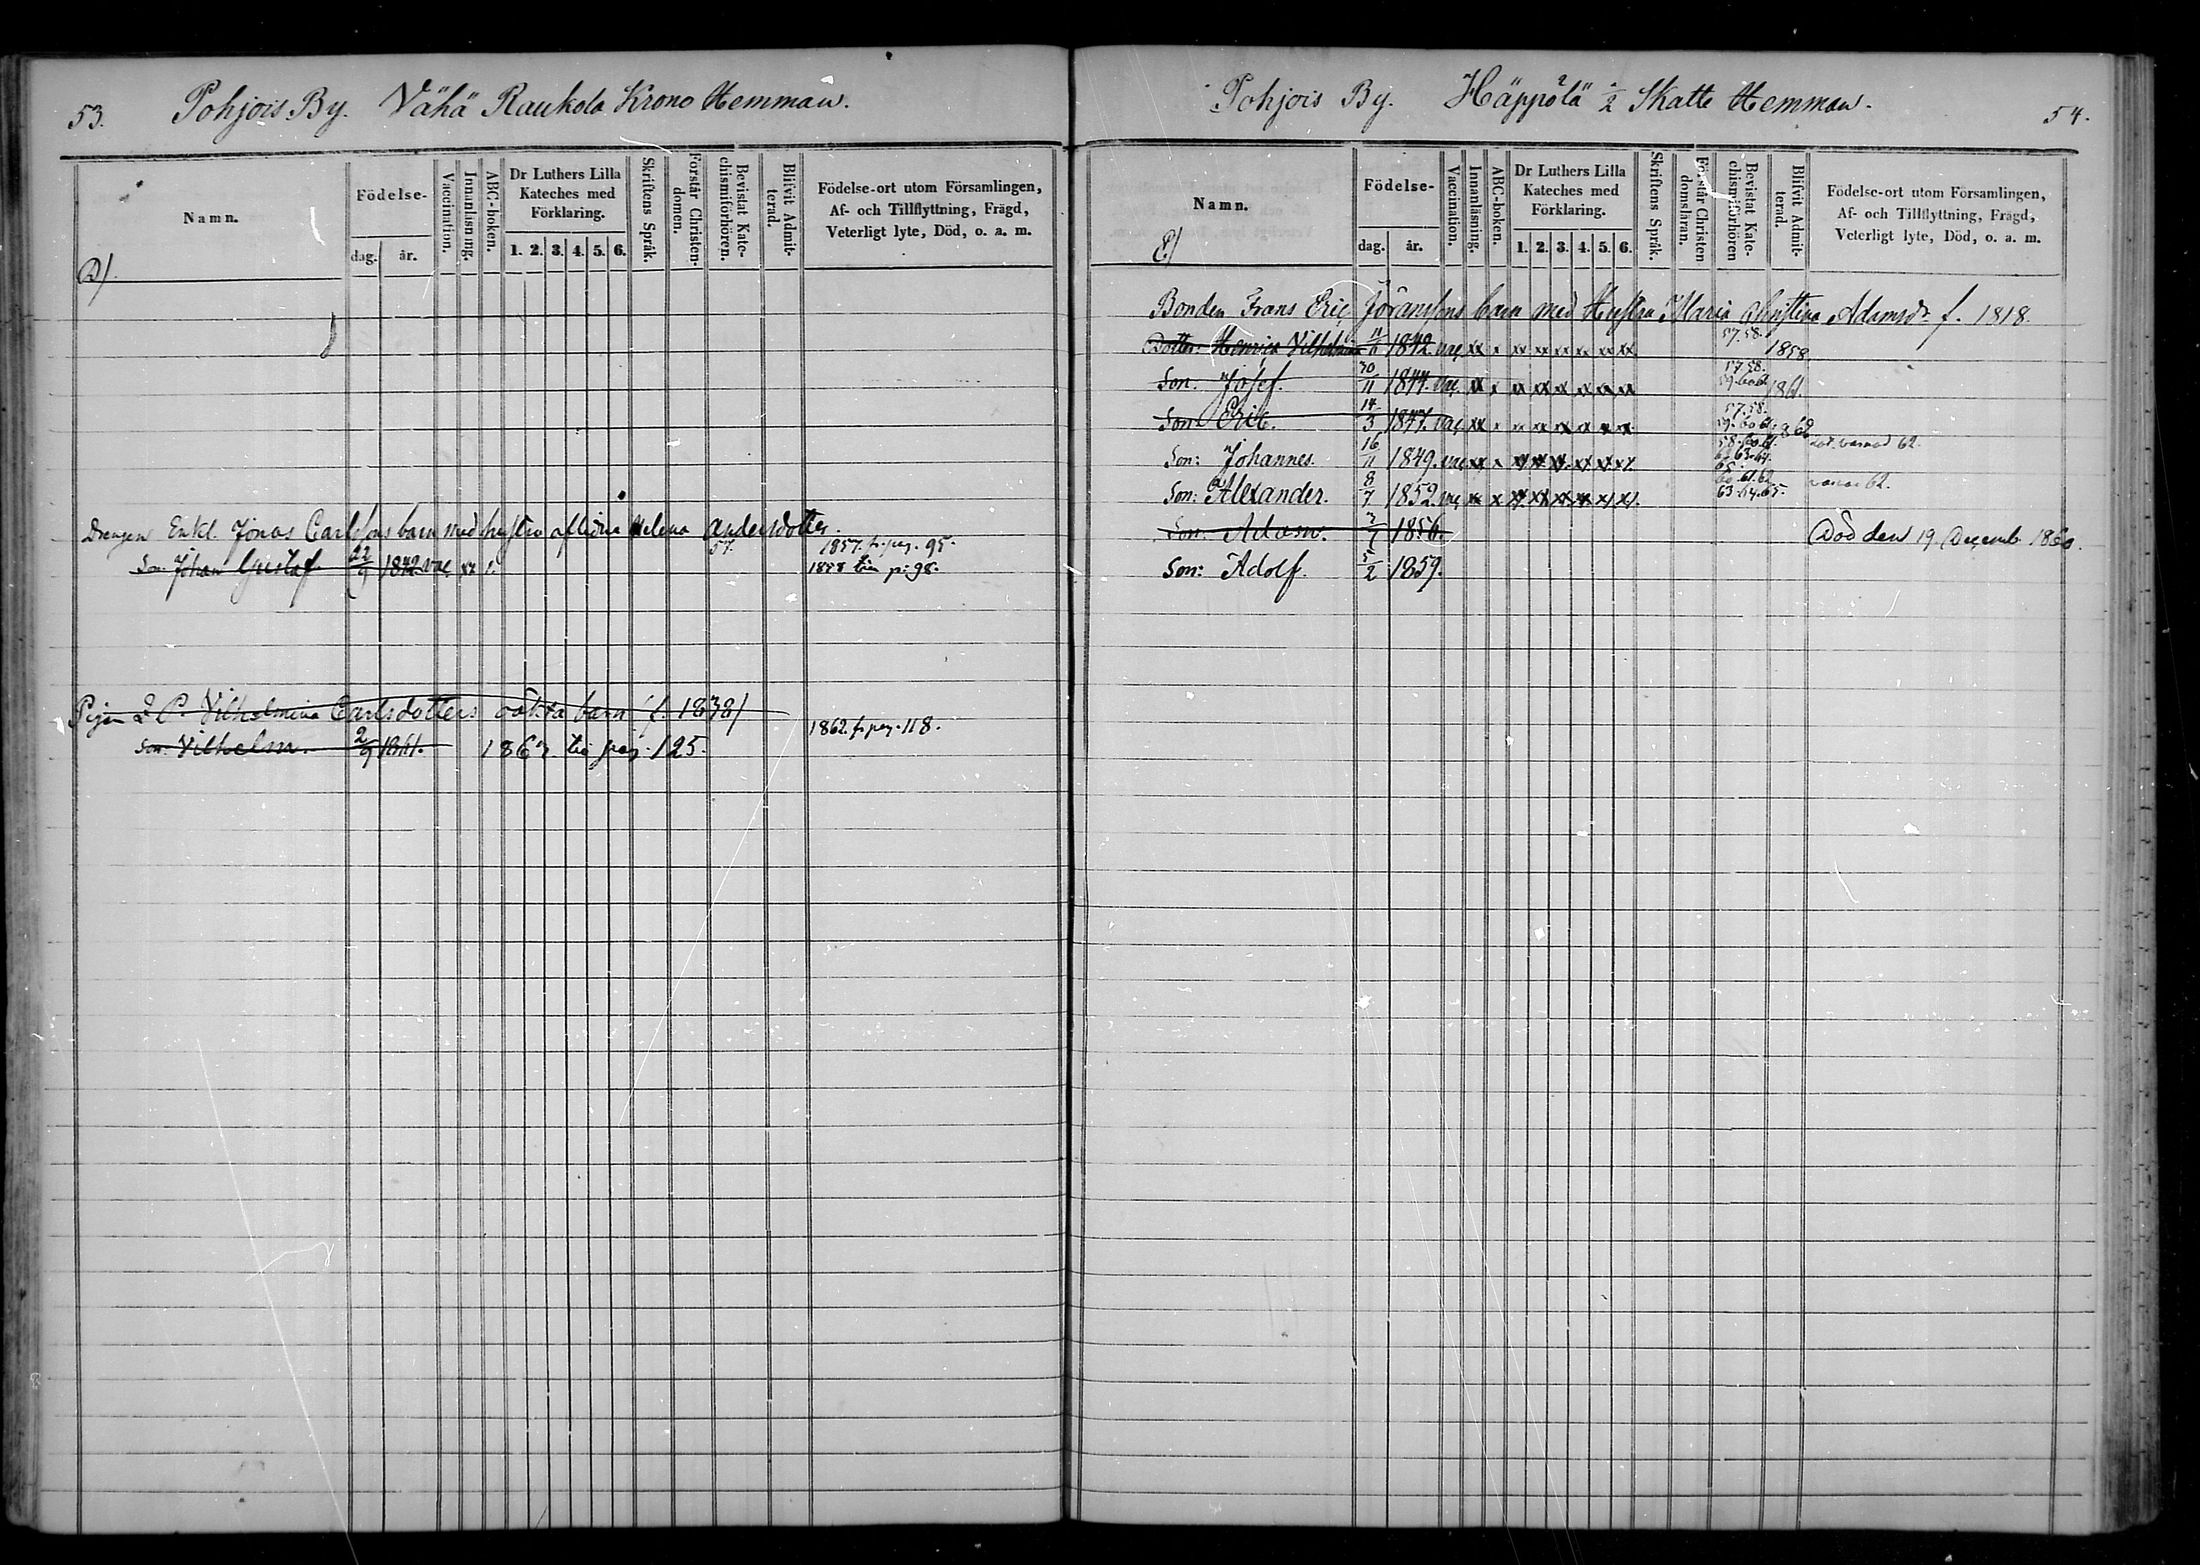 53. Pohjois By. Vähä Raukola Krono Hemman.
Namn.
Födelse-
dag.
år.
Vaccination.
Innanläsning.
ABC-boken.
Dr Luthers Lilla
Kateches med
Förklaring.
1. 2. 3. 4. 5. 6.
Skriftens Språk.
Förstår Christen-
domen.
Bevistat Kate-
chismiförhören.
Blifvit Admit-
terad.
Födelse-ort utom Församlingen,
Af- och Tillflyttning, Frägd,
Veterligt lyte, Död, o. a. m.
D/.
Drengen Enkl. Jonas Carlssons barn med hustru aflidna Helena Andersdotter.
57. 1857. fr. pag. 95.
Son. Johan Gustaf 22/9 1842 vac. xx 1. 1858 till p: 98.
Pigan Vilhelmina Carlsdotters oäkta barn (f. 1838)
1862. fr. pag. 118.
Son. Vilhelm. 2/9 1861. till pag. 125.
Pohjois By. Häppölä 1/2 Skatte Hemman. 54.
Namn.
Födelse-
dag.
år.
Vaccination.
Innanläsning.
ABC-boken.
Dr Luthers Lilla
Kateches med
Förklaring.
1. 2. 3. 4. 5. 6.
Skriftens Språk.
Förstår Christen
domslaran.
Bevistat Kate-
chismiförhören
Blifvit Admit-
terad.
Födelse-ort utom Församlingen,
Af- och Tillflyttning, Frägd,
Veterligt lyte, Död, o. a. m.
Bonden Frans Eric Jöranssons barn med Hustru Maria Christina Adamsdr f. 1818.
Dotter: Henrica Vilhelmina 11/6 1842 vac. xx x xx xx xx xx xx xx 57. 58. 1858
Son. Josef. 30/11 1844. vac. xx x xx xx xx xx xx xx 57. 58. 59. 60. 61. 1861.
Son Eric. 14/3 1847. vac. xx x x xx xx xx xx xx 57. 58. 59. 60. 61. 62
Son: Johannes. 16/11 1849. vac. xx x xx xx xx xx xx xx 63. 64. 65. 62.
Son: Alexander. 8/7 1852. vac. x x xx xx xx xx xx xx 60. 61. 62. 63. 64. 65. 62.
Son: Adam. 1856. Död den 19. Decemb. 1860.
Son: Adolf. 5/2 1859.